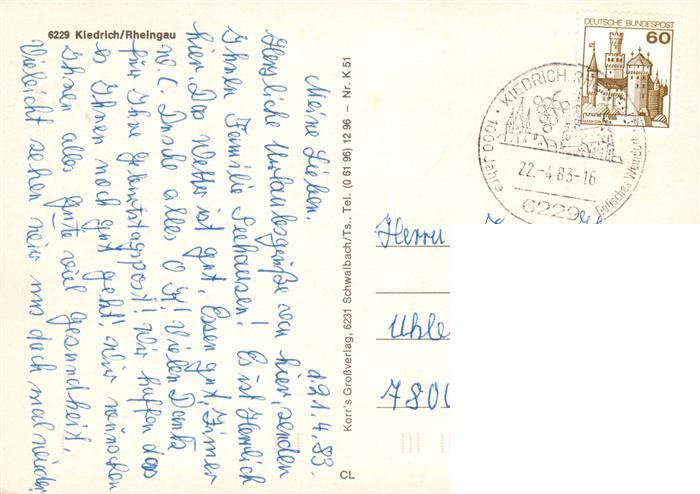 6229 Kiedrich/Rheingau
d. 21.4.83.
Meine Lieben
Herzliche Urlaubsgrüße von hier, senden
Ihnen Familie Seehausen! Es ist Herrlich
hier. Das Wetter ist gut, Essen gut, Zimmer
W C. Dusche alles O K! Vielen Dank
für Ihre Geburtstagspost! Wir hoffen das
es Ihnen noch gut geht! Wir wünschen
Ihnen alles gute viel Gesundheit,
Vieleicht sehen wir uns doch mal wieder
Korr's Großverlag, 6231 Schwalbach/Ts., Tel. (0 61 96) 12 96 – Nr. K 51
CL
DEUTSCHE BUNDESPOST
60
KIEDRICH
1000 Jahre
gotisches Weindorf
22.-4.83-16
6229
Herrn
Uhle
780